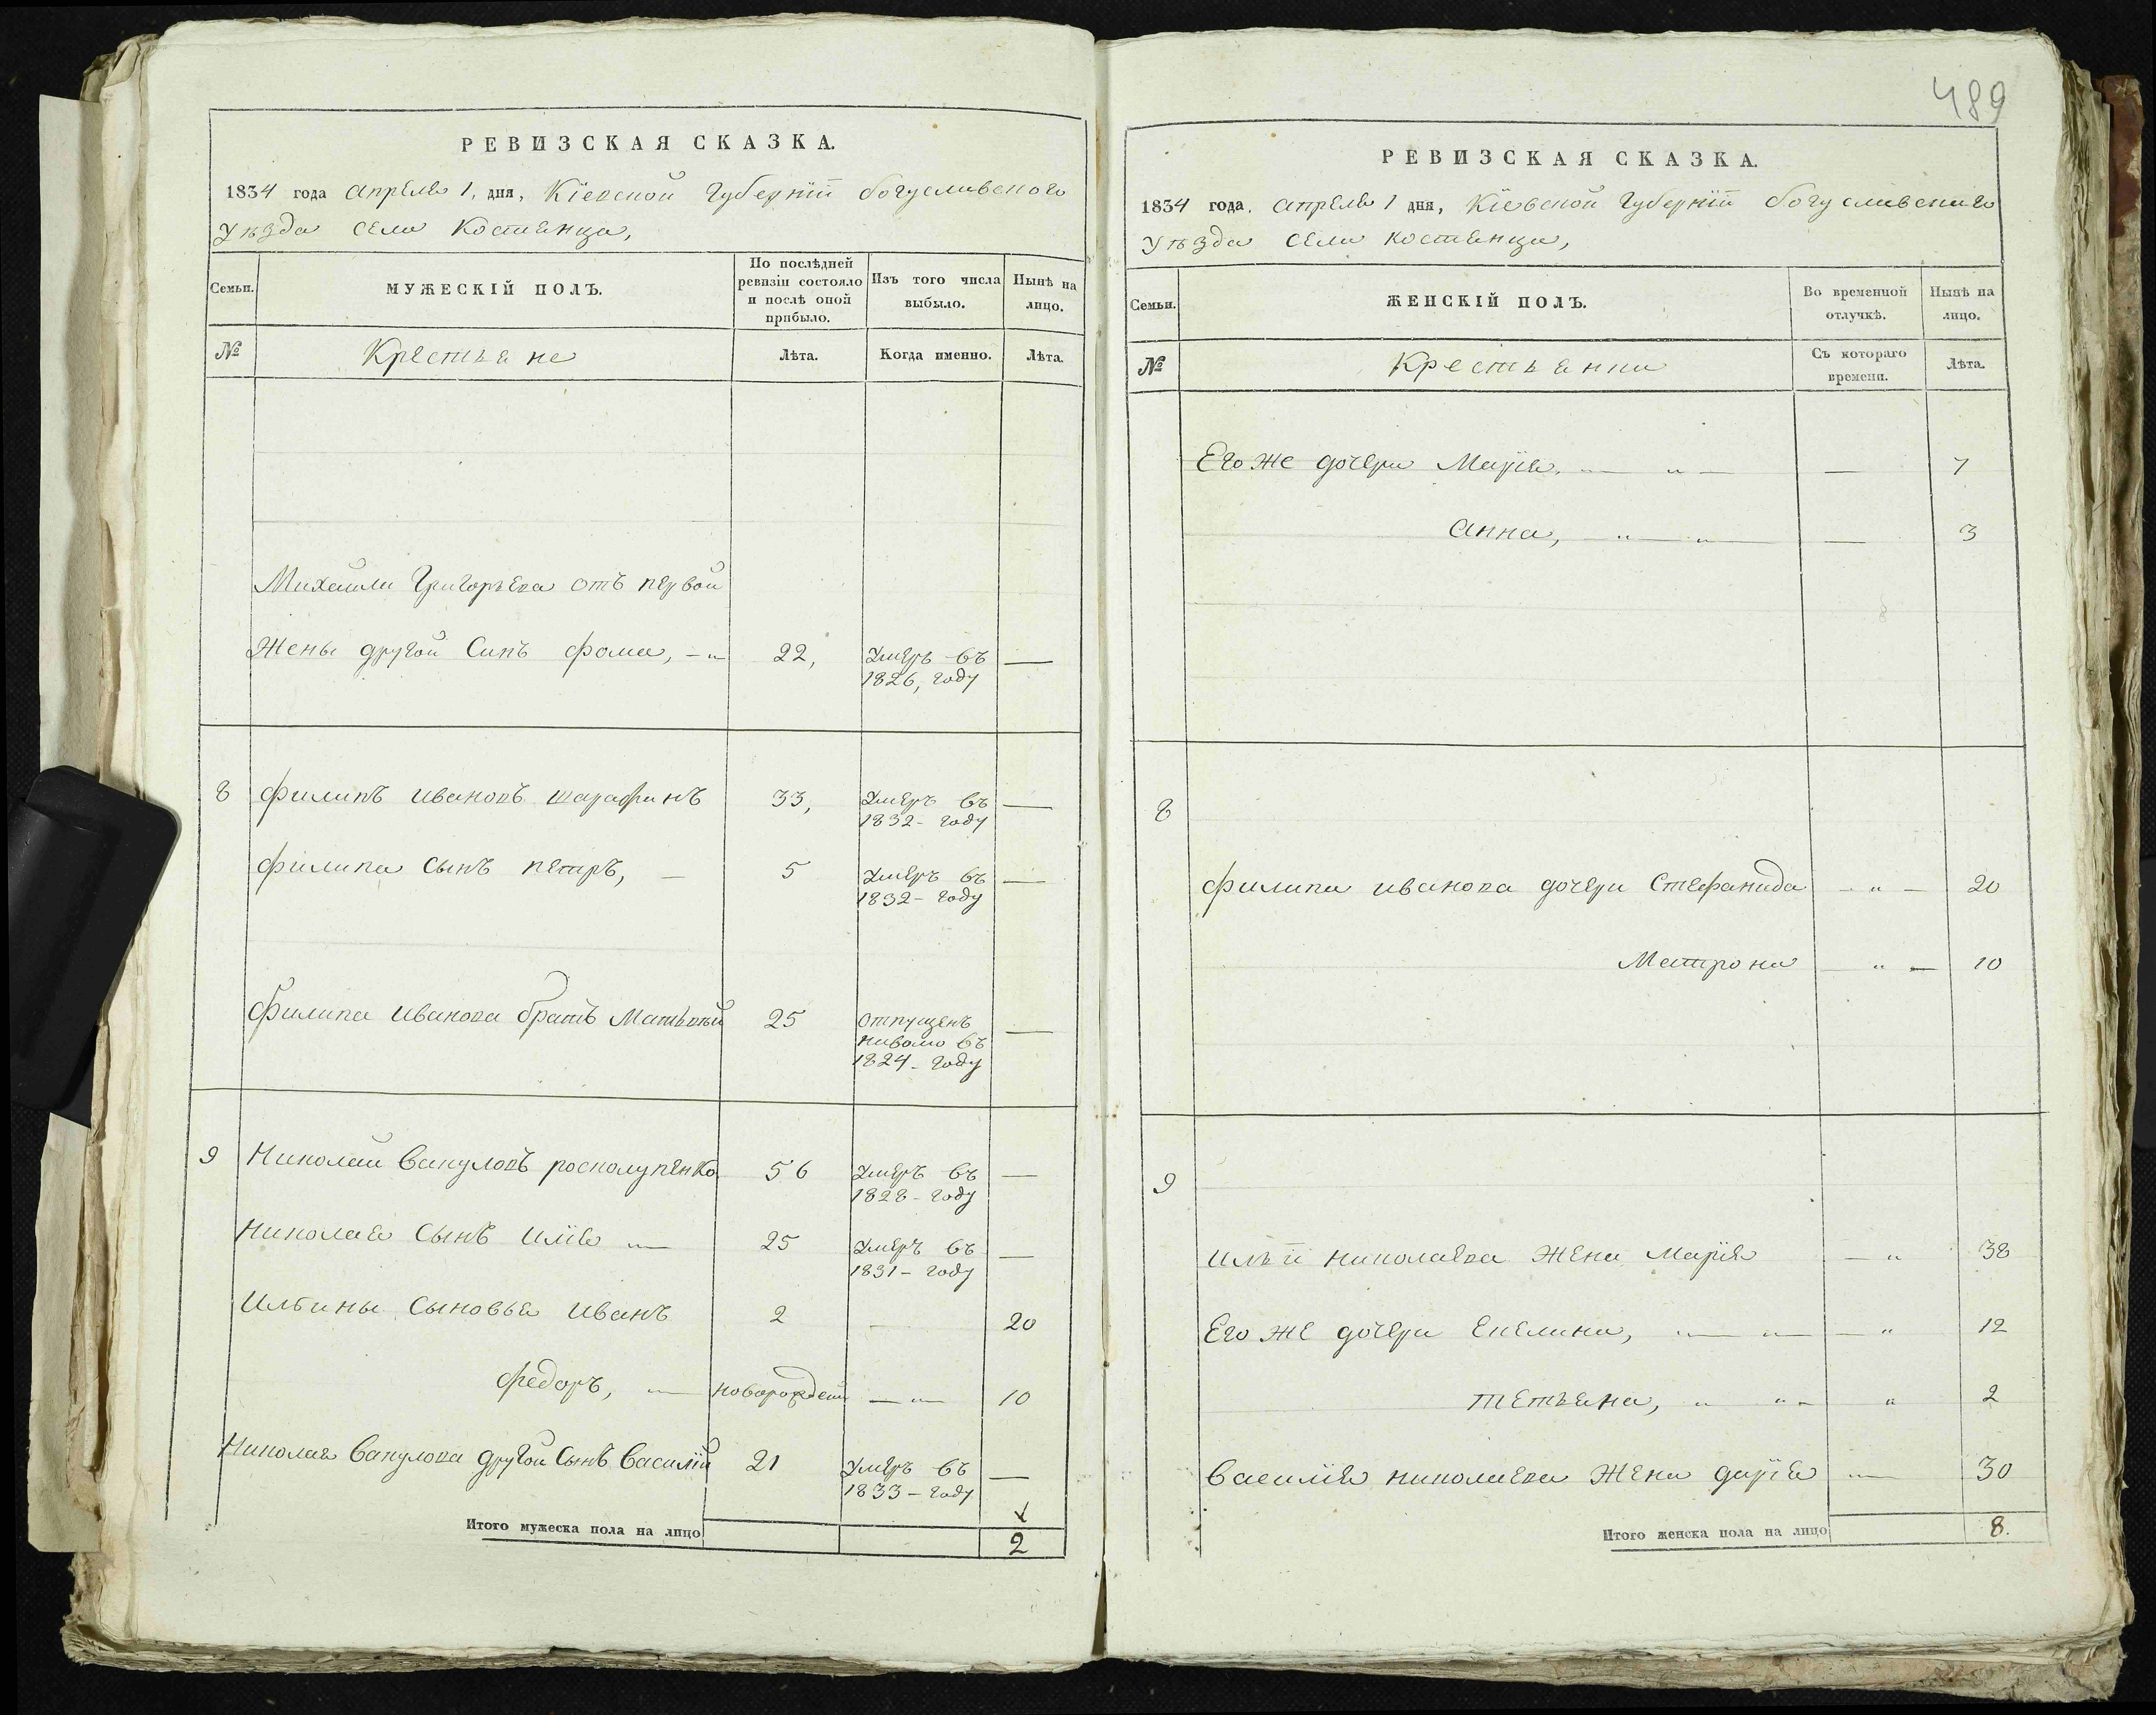 РЕВИЗСКАЯ СКАЗКА.
1834 года Апреля 1, дня, Кіевской Губерніи богуславского
уѣзда села Костянца,
Семьи.
МУЖЕСКІЙ ПОЛЪ.
По послѣдней
ревизіи состояло
и послѣ оной
прибыло.
Изъ того числа
выбыло.
Нынѣ на
лицо.
№
Крестьяне
Лѣта.
Когда именно.
Лѣта.
Михайла Григорьева отъ первой
Жены другой Синъ фома, 22, Умеръ въ
1826, году
8 филипъ ивановъ шарафинъ 33, Умеръ въ
1832 - году
филипа сынъ петръ, — 5 Умеръ въ
1832 - году
филипа иванова братъ Матвѣй 25 отпущенъ
наволю въ
1824 - году
9 Николай вакуловъ росколупенко 56 Умеръ въ
1828 - году
Николая Сынъ илія 25 Умеръ въ
1831 - году
Ильины Сыновья иванъ 2 — 20
федоръ, новорожден — 10
Николая вакулова другой Сынъ василій 21 Умеръ въ —
1833 - году
Итого мужеска пола на лицо 2
489
РЕВИЗСКАЯ СКАЗКА.
1834 года. апреля 1 дня, Кіевской Губерніи богуславского
уѣзда села костянца,
Семьи.
ЖЕНСКІЙ ПОЛЪ.
Во временной
отлучкѣ.
Нынѣ на
лицо.
№
Крестьянки
Съ котораго
времени.
Лѣта.
Его же дочери Марія. — 7
анна, — 3
8
филипа иванова дочери Стефанида — 20
Матрона — 10
9
ильи николаева жена Марія — 38
Его же дочери Акелина, — 12
Татьяна, 2
василія николаева жена дарія — 30
Итого женска пола на лицо 8.